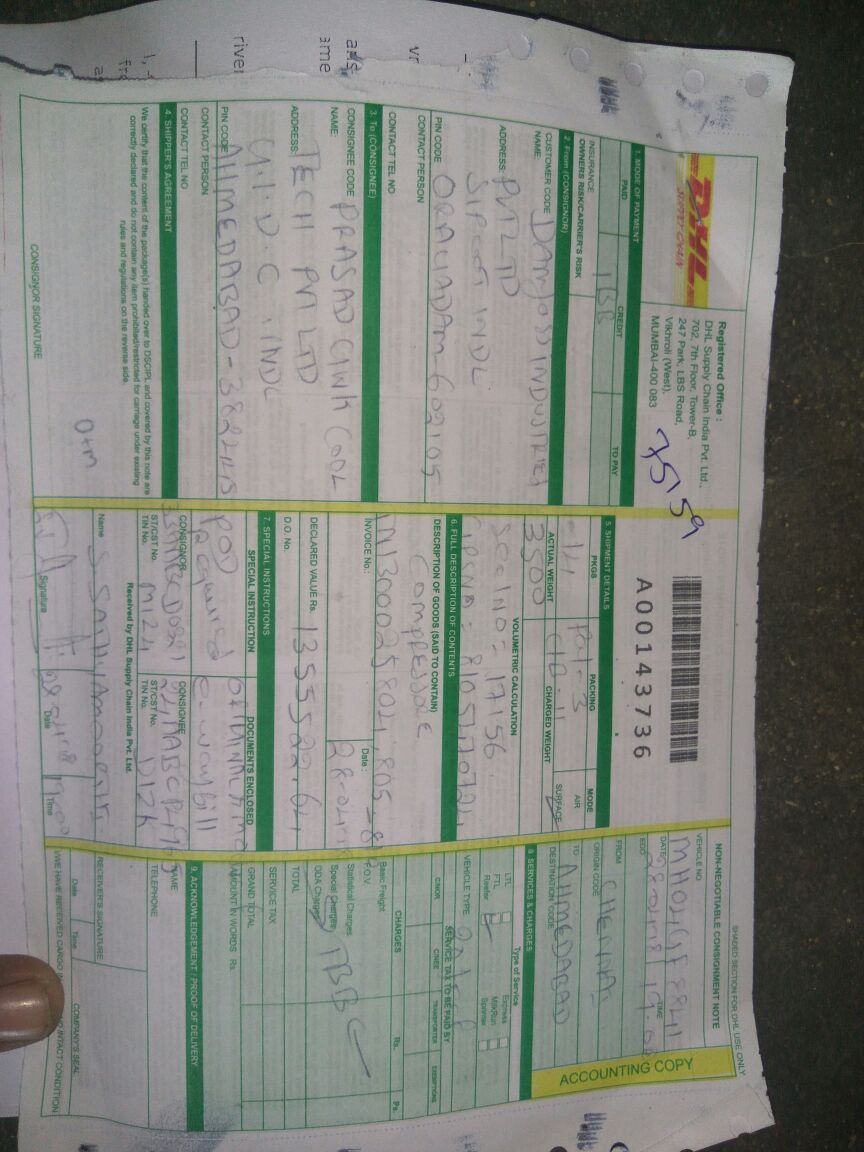 DHL
SUPPLY CHAIN
Registered Office :
DHL Supply Chain India Pvt. Ltd.,
702, 7th Floor, Tower-B,
247 Park, LBS Road,
Vikhroli (West),
MUMBAI-400 083
75159
1. MODE OF PAYMENT
PAID
CREDIT
TO PAY
TBB
INSURANCE
OWNERS RISK/CARRIER'S RISK
2. From (CONSIGNOR)
CUSTOMER CODE
NAME:
INDUSTRIES
ADDRESS: PVT LTD
SIPCOT INDL
PIN CODE ORAGADAM-602105
CONTACT PERSON
CONTACT TEL NO
3. To (CONSIGNEE)
CONSIGNEE CODE PRASAD GWK COOL
NAME:
TECH PVT LTD
ADDRESS:
G.I.D.C. INDL
PIN CODE AHMEDABAD-382445
CONTACT PERSON
CONTACT TEL NO
4. SHIPPER'S AGREEMENT
We certify that the content of the package(s) handed over to DSCIPL and covered by this note are
correctly declared and do not contain any item prohibited/restricted for carriage under existing
rules and regulations on the reverse side.
CONSIGNOR SIGNATURE
A00143736
5. SHIPMENT DETAILS
PKGS
PACKING
MODE
14
Pal-3
AIR
ACTUAL WEIGHT
CHARGED WEIGHT
SURFACE
3500
VOLUMETRIC CALCULATION
17156
6. FULL DESCRIPTION OF CONTENTS
DESCRIPTION OF GOODS (SAID TO CONTAIN)
COMPRESSOR
INVOICE No.:
Date :
DECLARED VALUE Rs. 1355522.64
D.O. No.
7. SPECIAL INSTRUCTIONS
SPECIAL INSTRUCTION
DOCUMENTS ENCLOSED
POD
Required
e-way bill
CONSIGNOR
CONSIGNEE
ST/CST No.
TIN No.
ST/CST No.
TIN No.
Received by DHL Supply Chain India Pvt. Ltd.
Name
Signature
Date
Time
NON-NEGOTIABLE CONSIGNMENT NOTE
SHADED SECTION FOR DHL USE ONLY
VEHICLE NO
DATE
TIME
EDD
FROM CHENNAI
ORIGIN CODE
TO AHMEDABAD
DESTINATION CODE
ACCOUNTING COPY
8 SERVICES & CHARGES
Type of Service
LTL
FTL
Reefer
Express
MilkRun
Sponsar
VEHICLE TYPE
SERVICE TAX TO BE PAID BY
C/NOR
C/NEE
TRANSPORTER
EXEMPTIONS
CHARGES
Rs.
Ps.
Basic Freight
F.O.V.
Statistical Charges
Special Charges
ODA Charges
TBB
TOTAL
SERVICE TAX
GRAND TOTAL
AMOUNT IN WORDS Rs.
9. ACKNOWLEDGEMENT / PROOF OF DELIVERY
NAME
TELEPHONE
RECEIVER'S SIGNATURE
Date
Time
COMPANY'S SEAL
INTACT CONDITION